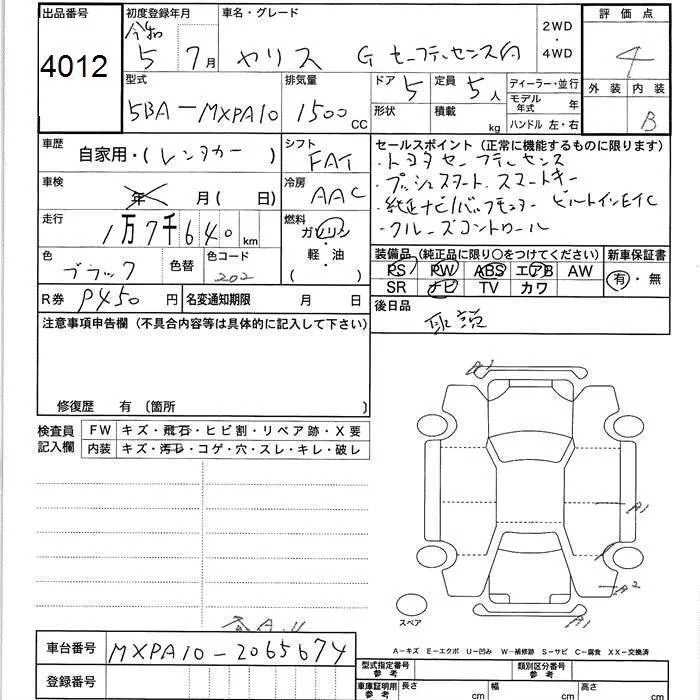 出品番号 初度登録年月 車名・グレード 2WD ・ 4WD 評価点
4012 令和 5 7月 ヤリス G セーフティセンス付 4
型式 排気量 ドア 5 定員 5人 ディーラー・並行 外装 内装
5BA-MXPA10 1500 CC 形状 積載 kg モデル年式 年 ハンドル 左・右 B
車歴 自家用・(レンタカー) シフト FAT セールスポイント（正常に機能するものに限ります）
・トヨタセーフティセンス
車検 年 月( 日) 冷房 AAC ・プッシュスタート. スマートキー
・純正ナビ/バックモニター ビルトインETC
走行 1万7千640km 燃料 ガソリン・軽・油( ) ・クルーズコントロール
色 ブラック 色替 色コード 202 装備品（純正品に限り○をつけてください） 新車保証書
PS PW ABS エアB AW 有・無
SR ナビ TV カワ
R券 P450円 名変通知期限 月 日 後日品
注意事項申告欄（不具合内容等は具体的に記入して下さい） 取説
修復歴 有〔箇所 〕
検査員記入欄 FW キズ・飛石・ヒビ割・リペア跡・X要
内装 キズ・汚レ・コゲ・穴・スレ・キレ・破レ
A1
A1
A2
A1
スペア
A-キズ E-エクボ U-凹み W-補修跡 S-サビ C-腐食 XX-交換済
車台番号 MXPA10-2065674
登録番号
型式指定番号 参考 類別区分番号 参考
車庫証明用 参考 長さ cm 幅 cm 高さ cm